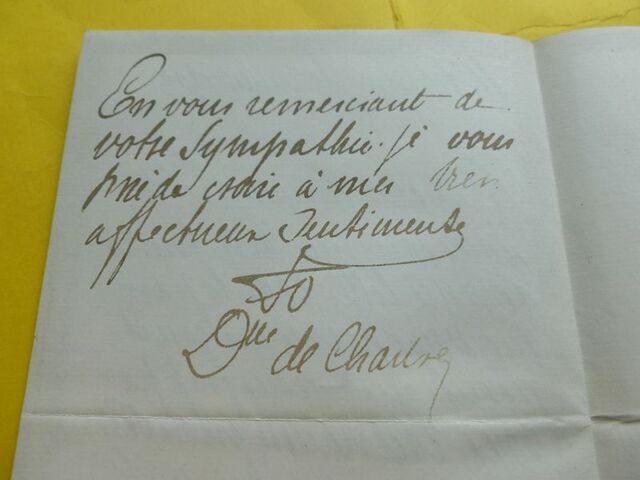 En vous remerciant de
votre Sympathie. je vous
prie de croire à mes très
affectueux Sentiments
Dsse de